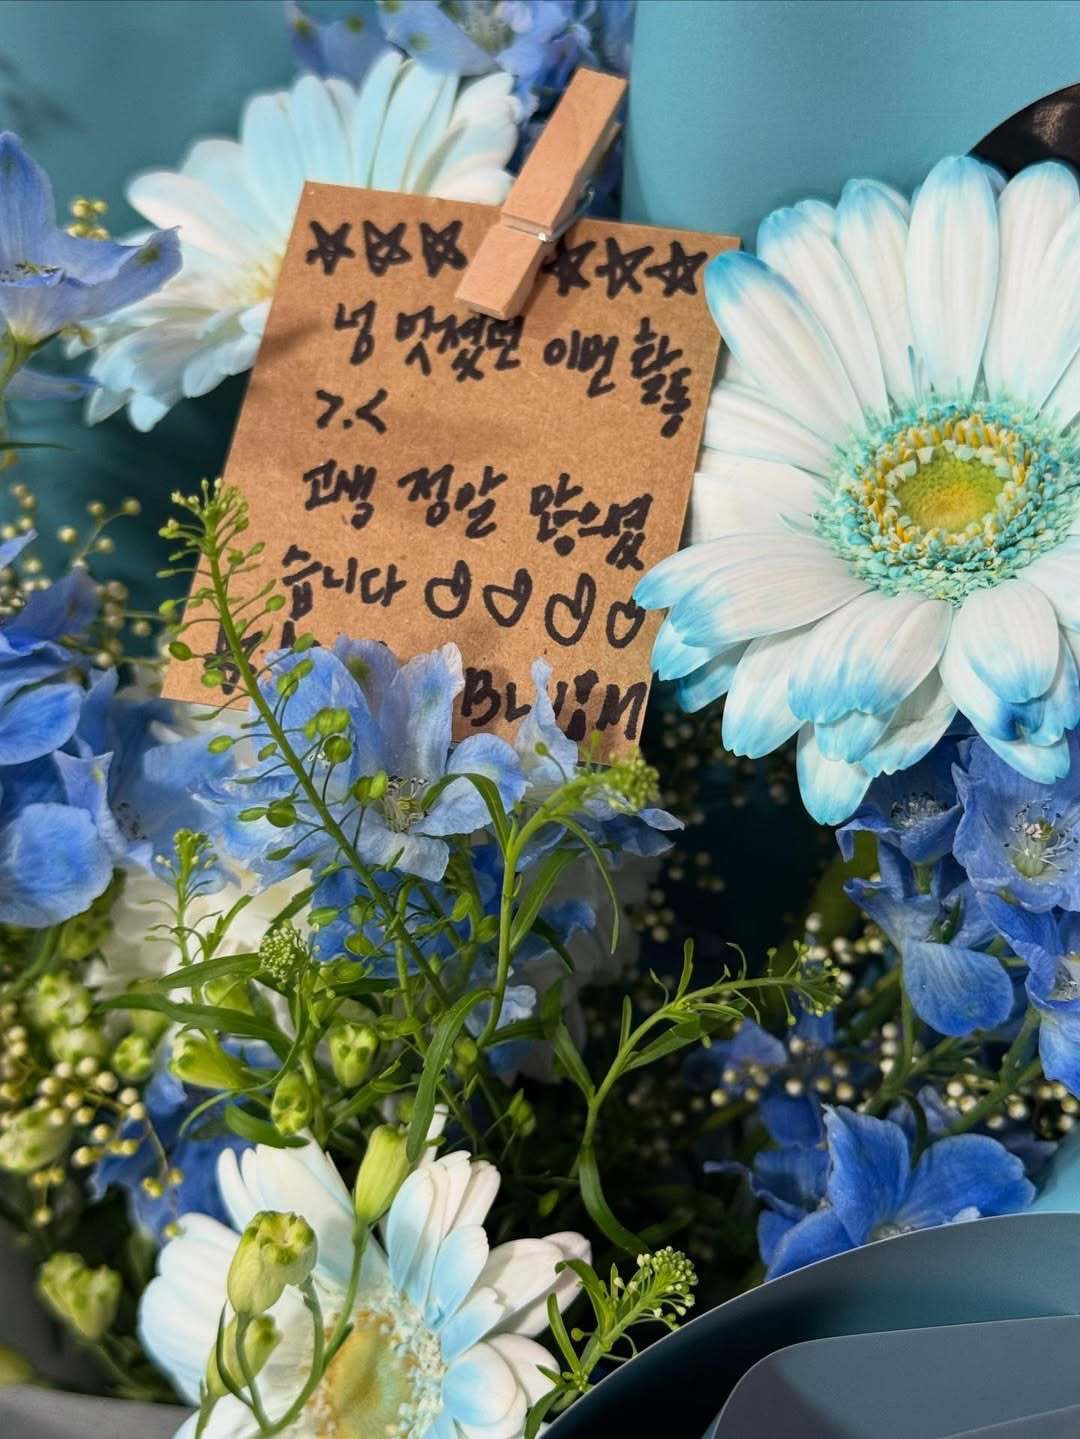 ☆☆☆ ☆☆☆
넝 멋졌던 이번 활동
>.<
고생 정말 많으셨
습니다 ♡♡♡♡